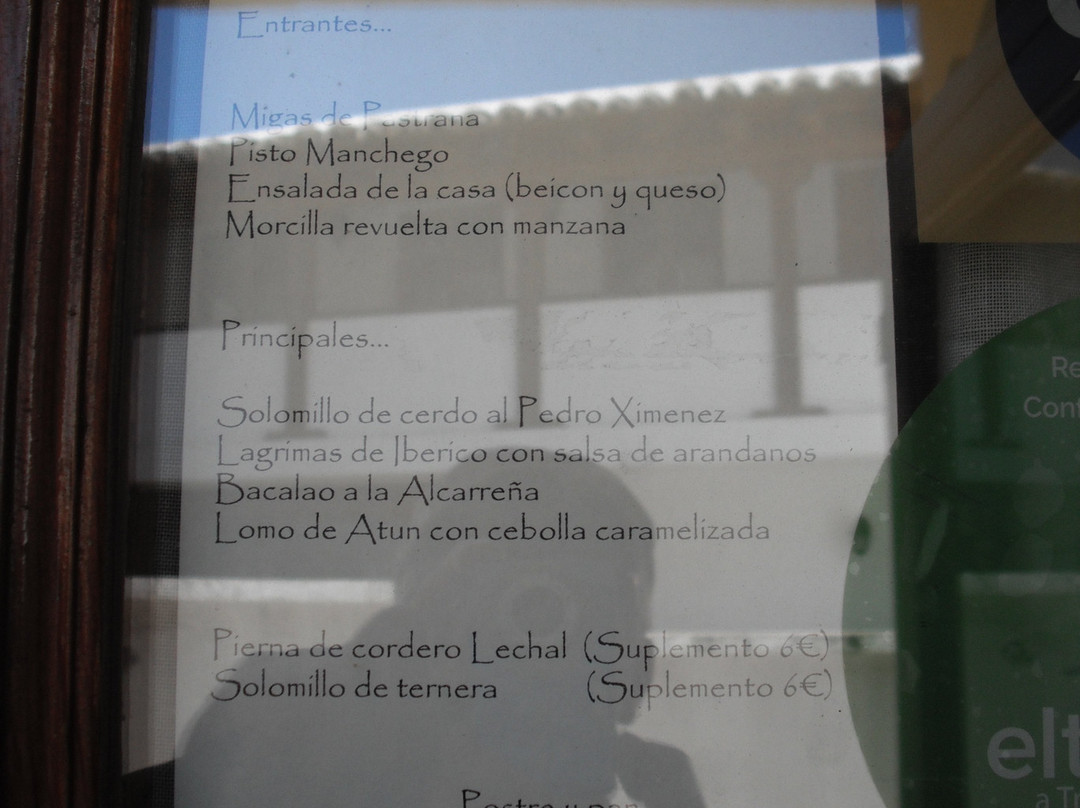 Entrantes...
Migas de Pastrana
Pisto Manchego
Ensalada de la casa (beicon y queso)
Morcilla revuelta con manzana
Principales...
Solomillo de cerdo al Pedro Ximenez
Lagrimas de Iberico con salsa de arandanos
Bacalao a la Alcarreña
Lomo de Atun con cebolla caramelizada
Pierna de cordero Lechal (Suplemento 6€)
Solomillo de ternera (Suplemento 6€)
Postre y pan
Re
Conf
elt
a Tu